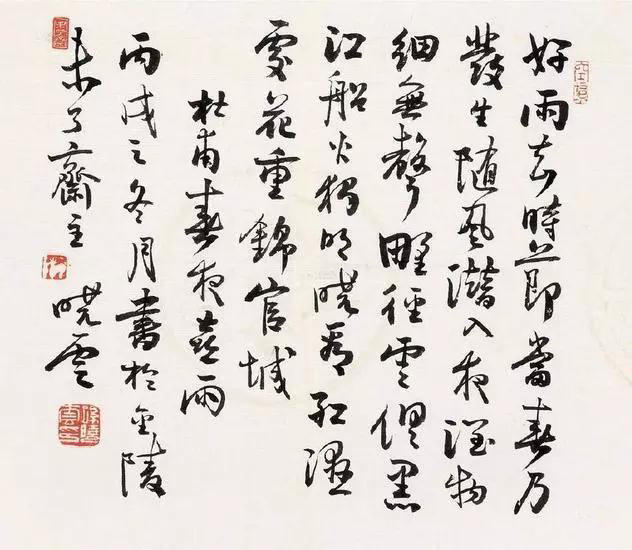 好雨知時節當春乃
發生随風潛入夜潤物
細無聲野徑雲俱黑
江船火獨明曉看紅濕
處花重錦官城
杜甫春夜喜雨
丙戌之冬月書於金陵
未了齋主曉雲